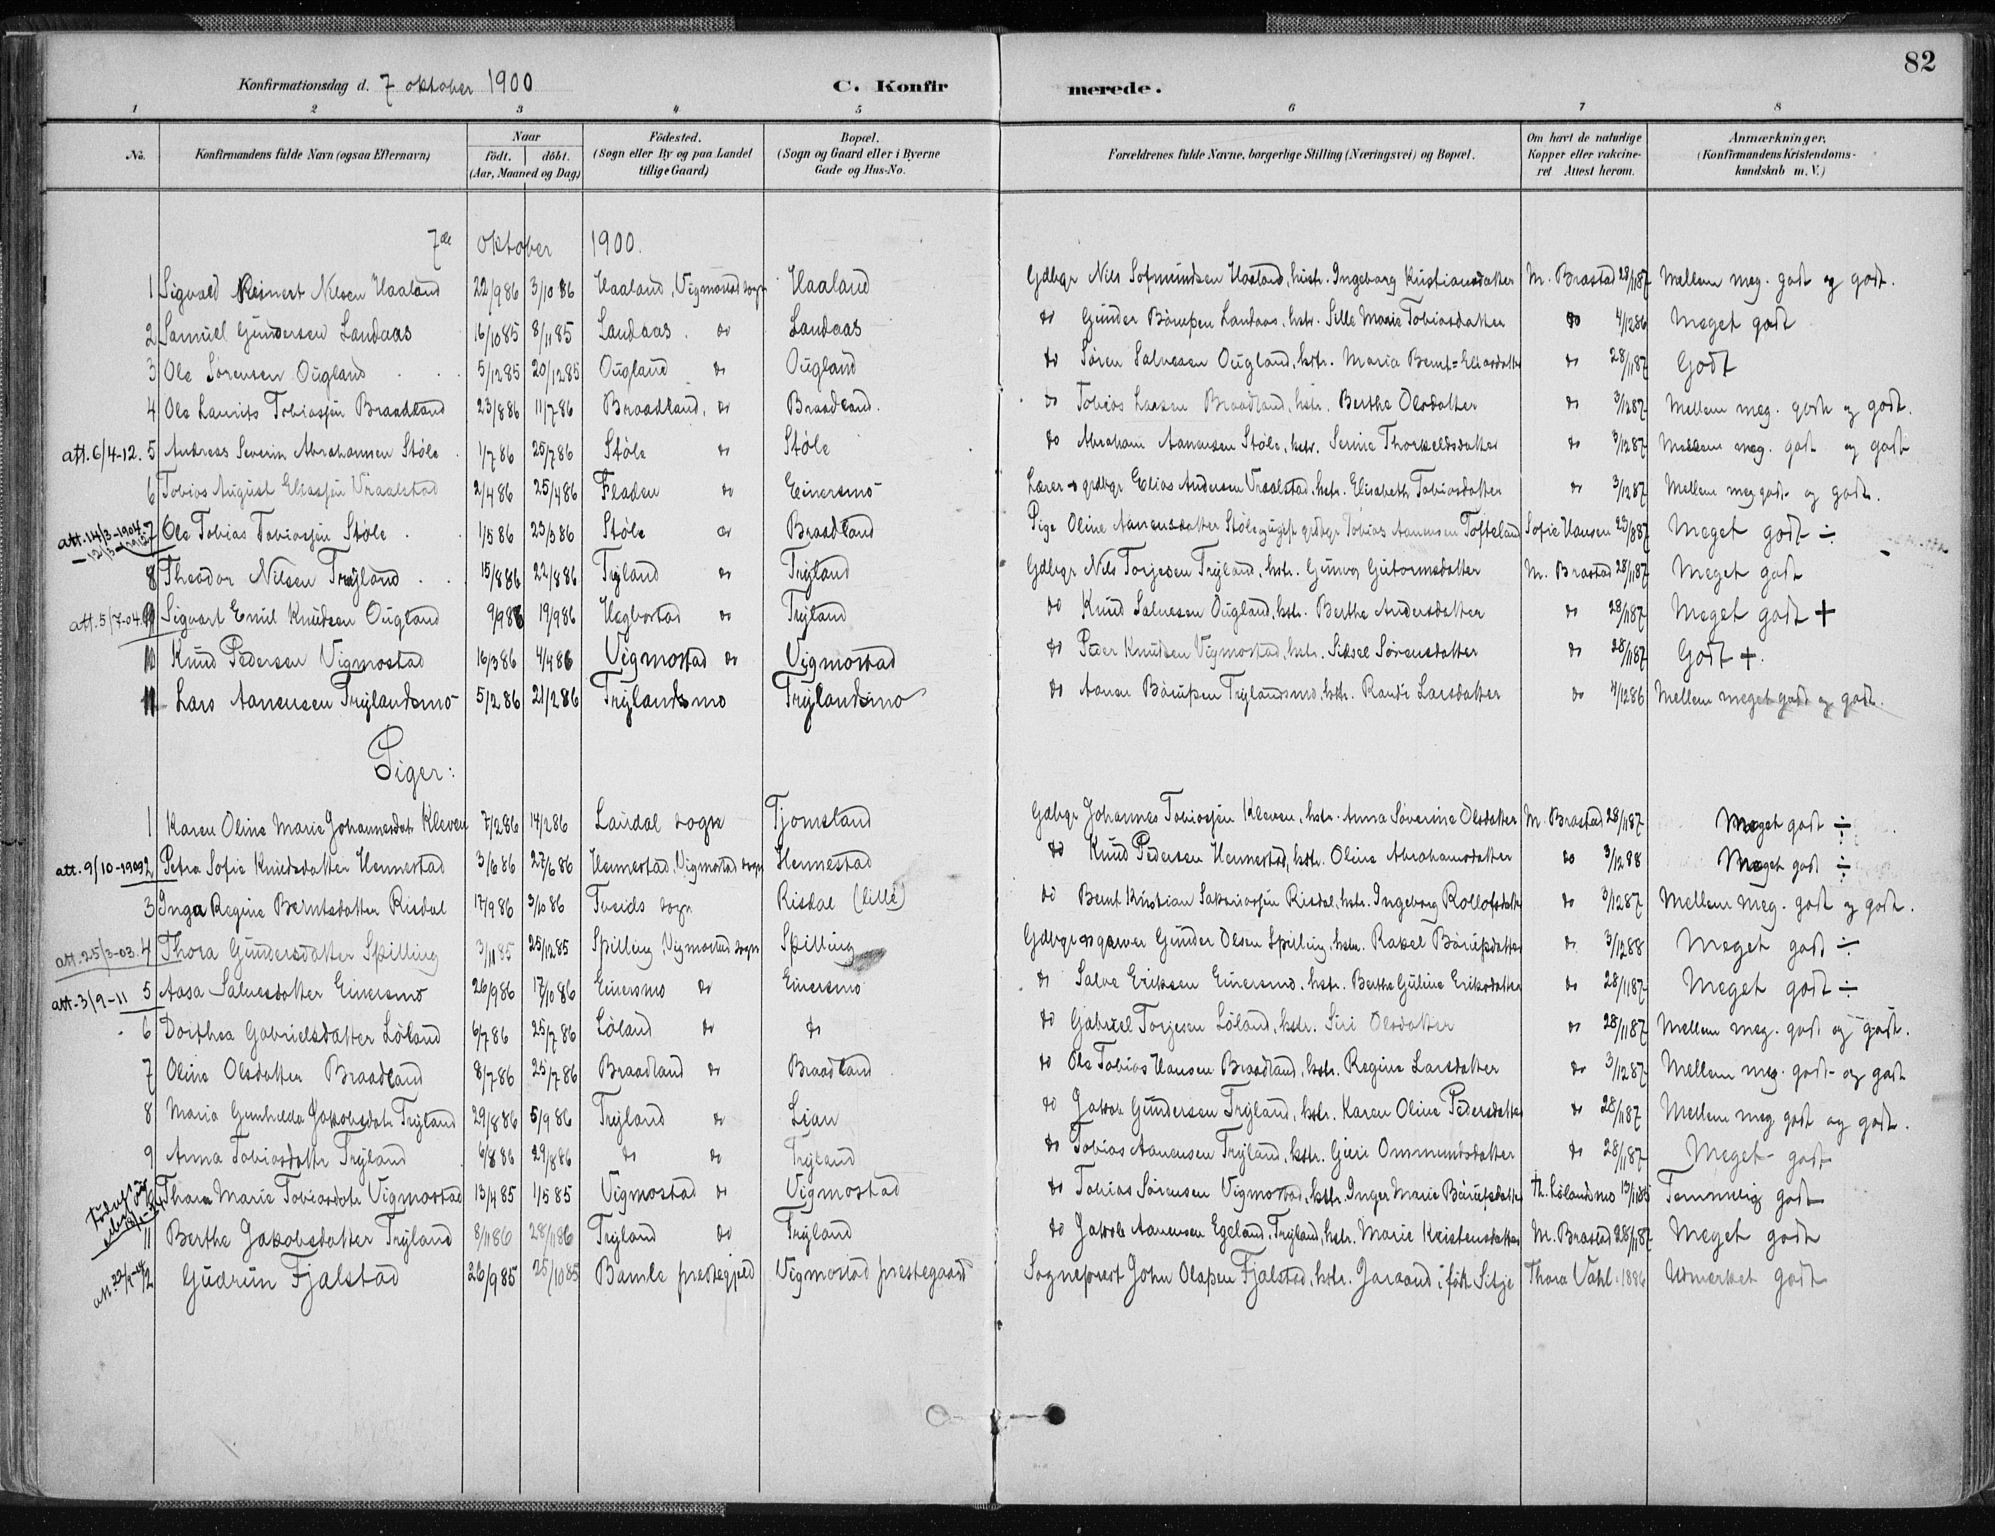 82
Konfirmationsdag d. 7 oktober 1900 C. Konfirmerede.
1 2 3 4 5 6 7 8
No. Konfirmandens fulde Navn (ogsaa Efternavn) Naar födt. döbt. (Aar, Maaned og Dag) Födested. (Sogn eller By og paa Landet tillige Gaard) Bopæl. (Sogn og Gaard eller i Byerne Gade og Hus-No. Forældrenes fulde Navne, borgerlige Stilling (Næringsvei) og Bopæl. Om havt de naturlige Kopper eller vakcineret Attest herom. Anmærkninger, (Konfirmandens Kristendomskundskab m. V.)
7de oktober 1900.
1 Sigvald Reinert Nilsen Haaland 22/9 86 3/10 86 Haaland, Vigmostad sogn Haaland Gdbgr Nils Sofmundsen Haaland, hustr. Ingeborg Kristiansdatter M. Brastad 28/11 87 Mellem meg. godt og godt.
2 Samuel Gundersen Landaas 16/10 85 8/11 85 Landaas. do Landaas do Gunder Bårupsen Landaas, hstr. Sille Marie Tobiasdatter do 4/12 86 Meget godt
3 Ole Sörensen Ougland 5/12 85 20/12 85 Ougland do Ougland do Sören Salvesen Ougland, hstr. Maria Bernt=Eliasdatter do 28/11 87 Godt
4 Ole Laurits Tobiassen Braadland 23/8 86 11/7 86 Braadland, do Braadland. do Tobias Larsen Braadland, hstr. Berthe Olsdatter do 3/12 87 Mellem meg. godt og godt.
att. 6/4-12. 5 Andreas Severin Abrahamsen Støle 1/7 86 25/7 86 Støle do Støle do Abraham Aanensen Støle, hstr. Serine Thorkelsdatter do 3/12 87 Mellem meg. godt og godt
6 Tobias August Eliassen Vraalstad 2/4 86 25/4 86 Fladen do Einersmo Lærer og grdbgr Elias Andersen Vraalstad, hstr. Elisabeth Tobiasdatter do 3/12 87 Mellem meg godt og godt.
att. 14/3-1904 7 Ole Tobias Tobiassen Støle 1/5 86 23/3 86 Støle do Braadland Pige Oline Aanensdatter Støle og ugift grdbgr Tobias Aanensen Tofteland Sofie Hansen 23/8 87 Meget godt ÷
8 Theodor Nilsen Tryland 15/8 86 22/8 86 Tryland do Tryland Gdbgr Nils Torjesen Tryland, hstr. Gunvor Gutormsdatter M. Brastad 28/11 87 Meget godt
att. 5/7-04. 9 Sigvart Emil Knudsen Ougland 9/9 86 19/9 86 Hegbostad do Tryland do Knud Salvesen Ougland, hstr. Berthe Andersdatter do 28/11 87 Meget godt +
10 Knud Pedersen Vigmostad 16/3 86 4/4 86 Vigmostad do Vigmostad do Peder Knudsen Vigmostad, hstr. Siksel Sörensdatter do 28/11 87 Godt +.
11 Lars Aanensen Trylandsmo 5/2 86 21/2 86 Trylandsmo Trylandsmo do Aanen Bårupsen Trylandsmo, hstr. Randi Larsdatter do 4/12 86 Mellem meget godt og godt.
Piger:
1 Karen Oline Marie Johannesdatr Kleven 7/2 86 14/2 86 Laudal sogn Tjomsland Gdbgr Johannes Tobiassen Kleven, hstr. Anna Severine Olsdatter M. Brastad 28/11 87 Meget godt ÷
att. 9/10-1909 2 Petra Sofie Knudsdatter Hennestad 3/6 86 27/6 86 Hennestad, Vigmostad sogn Hennestad do Knud Pedersen Hennestad, hstr. Oline Abrahamsdatter do 3/12 88 Meget godt ÷
3 Inga Regine Berntsdatter Risdal 17/9 86 3/10 86 Fuseids sogn Risdal (lille) do Bernt Kristian Sakariassen Risdal, hstr. Ingeborg Rollofsdatter do 3/12 87 Mellem meg. godt og godt.
att. 25/3-03. 4 Thora Gundersdatter Spilling 3/11 85 25/12 85 Spilling Vigmostad sogn Spilling Gdbgr og garver Gunder Olsen Spilling, hstr. Rakel Bårupsdatter do 3/12 88 Meget godt ÷
att. 3/9-11 5 Aasa Salvesdatter Einersmo 26/9 86 17/10 86 Einersmo do Einersmo do Salve Eriksen Einersmo, hstr. Berthe Guline Eriksdatter do 28/11 87 Meget godt ÷
6 Dorthea Gabrielsdatter Løland 6/7 86 25/7 86 Løland do do do Gabriel Torjesen Løland, hstr. Siri Olsdatter do 28/11 87 Mellem meg. godt og godt.
7 Oline Olsdatter Braadland 8/7 86 25/7 86 Braadland do Braadland do Ole Tobias Hansen Braadland, hstr. Regine Larsdatter do 3/12 87 Mellem meg. godt og godt
8 Maria Gunhilda Jakobsdatr Tryland 29/8 86 5/9 86 Tryland do Lian do Jakob Gundersen Tryland, hstr. Karen Oline Pedersdatter do 28/11 87 Mellem meg godt og godt.
9 Anna Tobiasdattr Tryland 6/8 86 29/8 86 do do Tryland do Tobias Aanensen Tryland, hstr. Guri Ommundsdatter do 28/11 87 Meget godt
10 Thora Marie Tobiasdatr Vigmostad 13/4 85 1/5 85 Vigmostad do Vigmostad do Tobias Sörensen Vigmostad, hstr. Inger Marie Bårupsdatter Th. Lölandsmo 13/11 85 Temmelig godt
11 Berthe Jakobsdatter Tryland 8/11 86 28/11 86 Tryland do Tryland do Jakob Aanensen Egeland, Tryland, hstr. Marie Kristensdatter M. Brastad 28/11 87 Meget godt
12 Gudrun Fjalstad 26/9 85 25/10 85 Bamle prestegjeld Vigmostad prestegaard Sogneprest John Olafsen Fjalstad, hstr. födt Silje Thora Vahl 1886 Udmerket godt